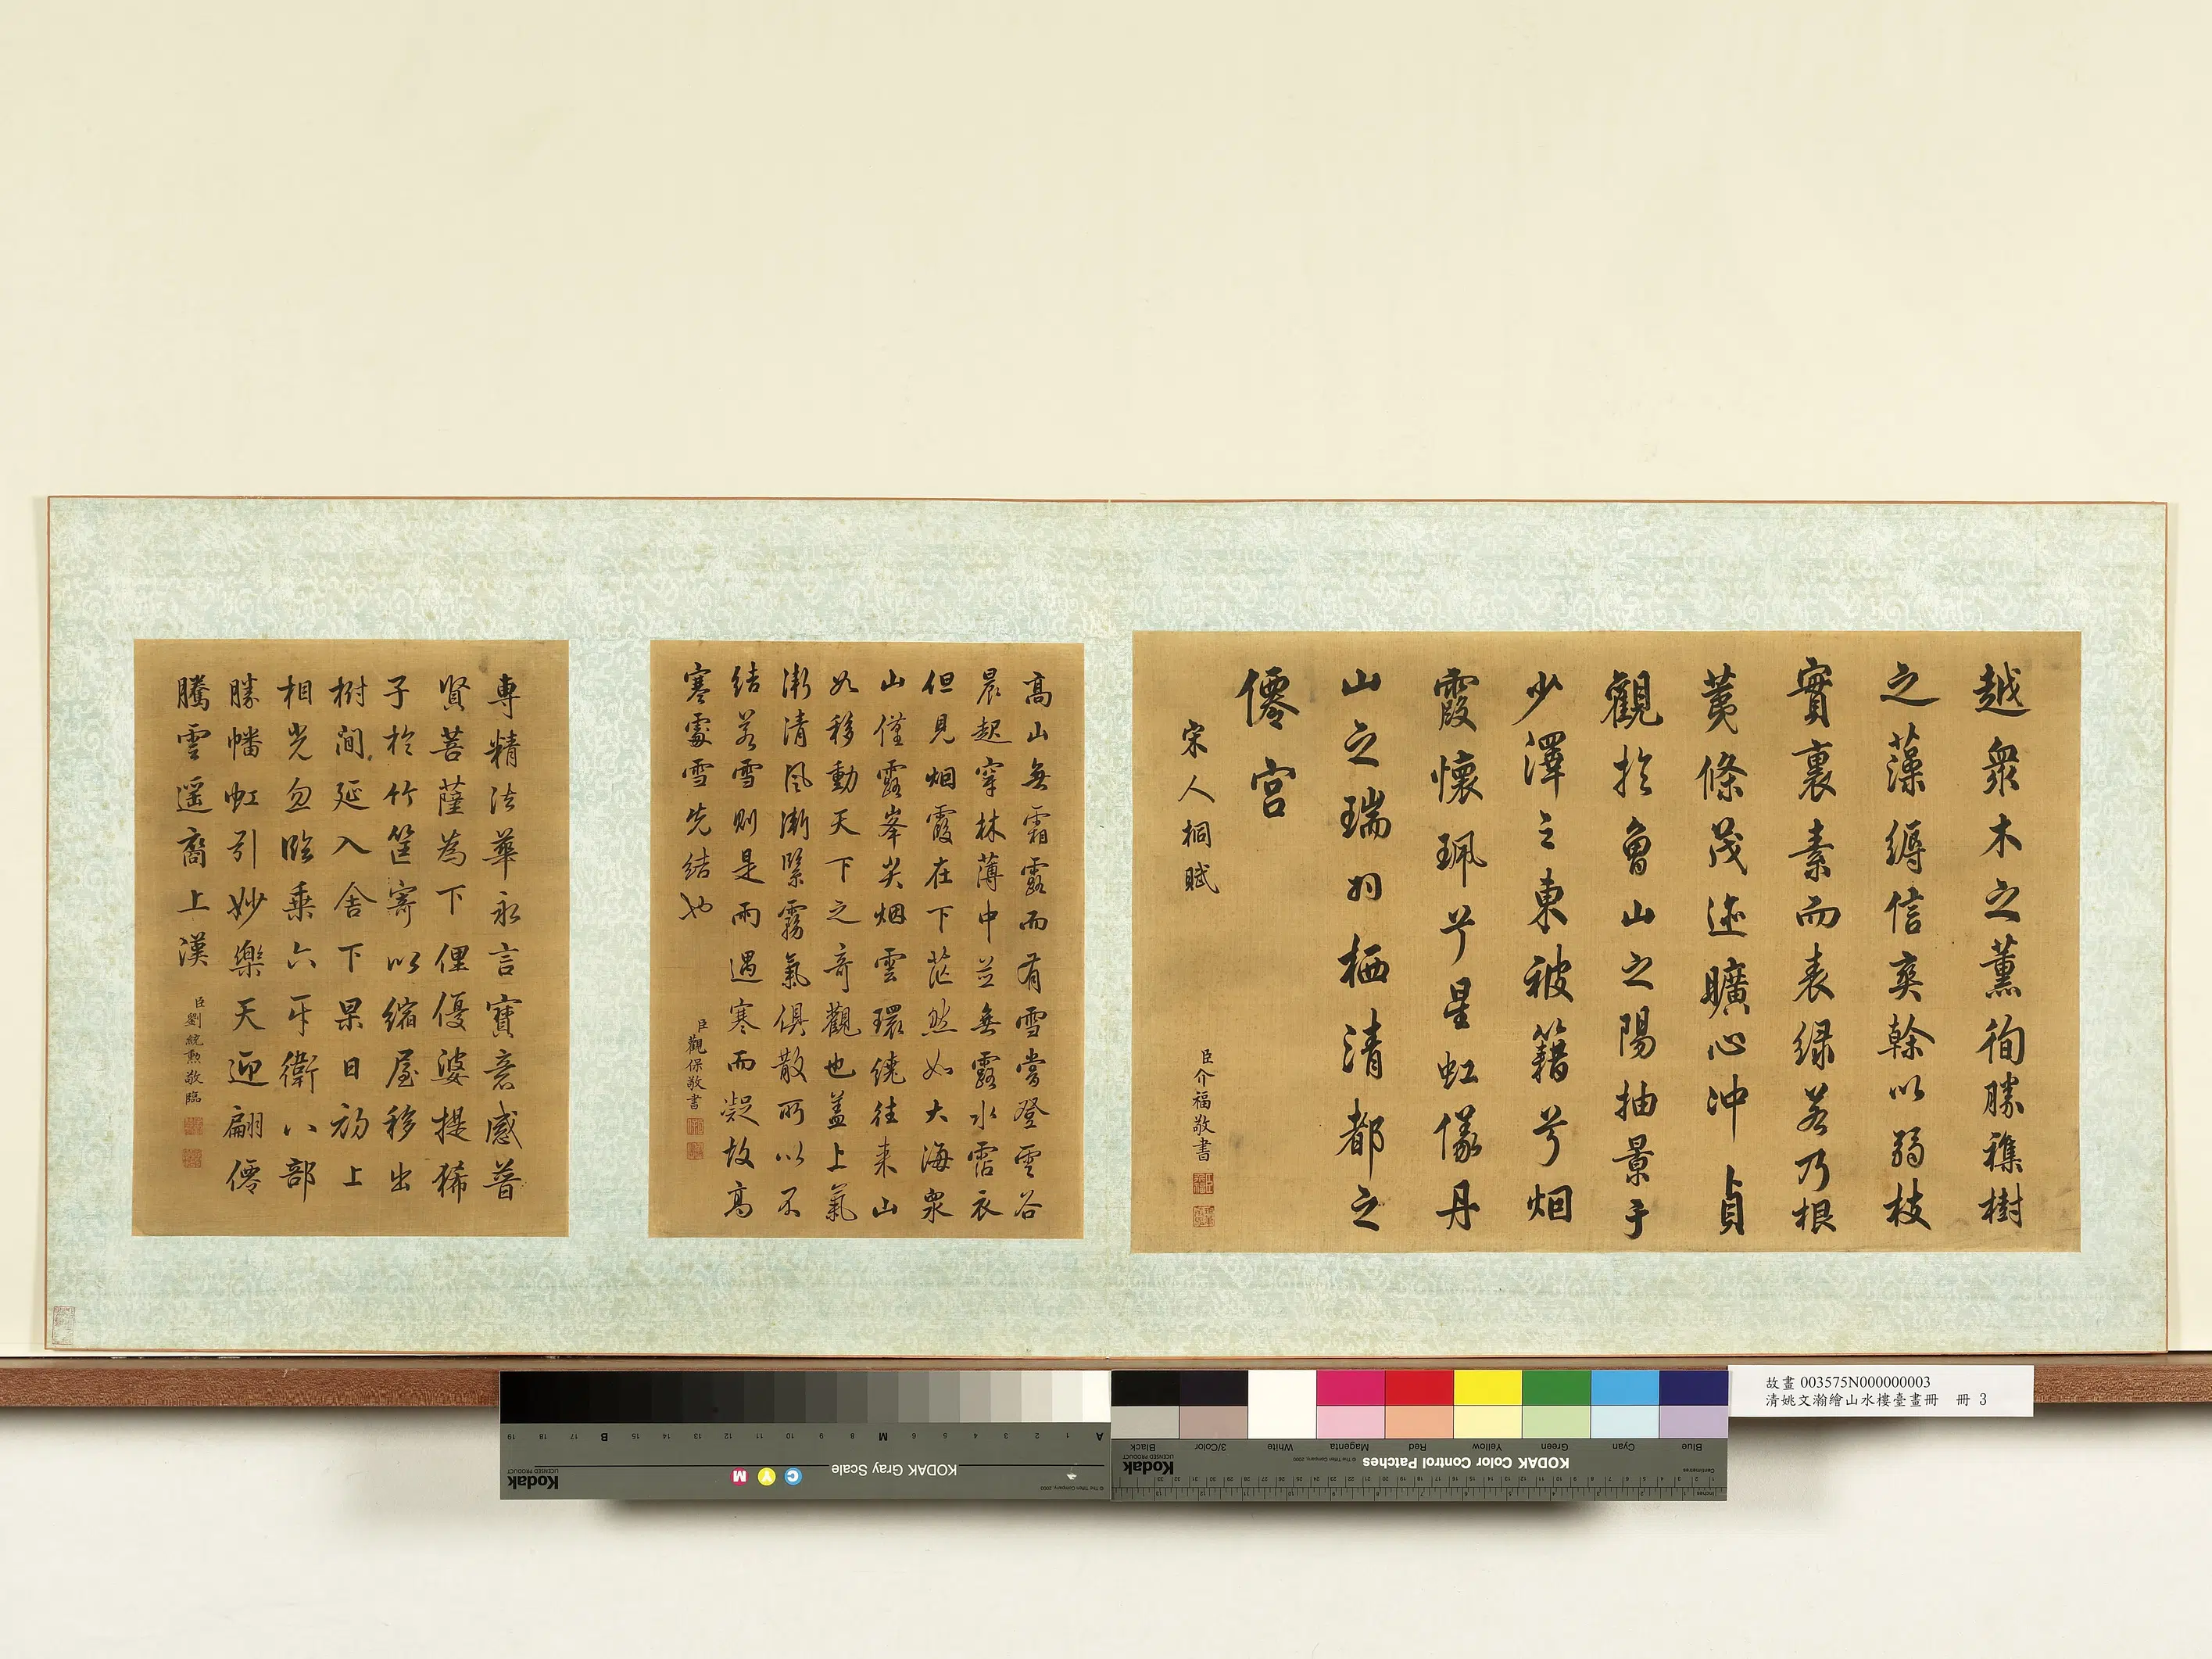 越衆木之薰徇勝雜樹
之藻縟信爽榦以弱枝
實裏素而表緑若乃根
荑條茂迹曠心冲貞
觀於魯山之陽抽景于
少澤之東被籍兮烟
霞懷珮兮星虹儀丹
山之瑞羽栖清都之
僊宮
宋人桐賦
臣介福敬書
高山無霜露而有雪嘗登雲谷
晨起穿林薄中並無露水霑衣
但見烟霞在下茫然如大海衆
山僅露峯尖烟雲環繞往来山
如移動天下之奇觀也蓋上氣
漸清風漸緊霧氣俱散所以不
結若雪則是雨遇寒而凝故高
寒處雪先結也
臣觀保敬書
専精法華永言寶意感普
賢菩薩為下俚優婆提狶
子於竹筐寄以縮屋移出
樹間延入舍下杲日初上
相光忽臨乗六牙衛八部
勝幡虹引妙樂天迎翩僊
騰雲遥裔上漢
臣劉統勲敬臨
故畫 003575N000000003
清姚文瀚繪山水樓臺畫冊 冊 3
KODAK Color Control Patches
Blue Cyan Green Yellow Red Magenta White 3/Color Black
Kodak
LICENSED PRODUCT
KODAK Gray Scale
C Y M
A 1 2 3 4 5 6 M 8 9 10 11 12 13 14 15 B 17 18 19
Kodak
LICENSED PRODUCT